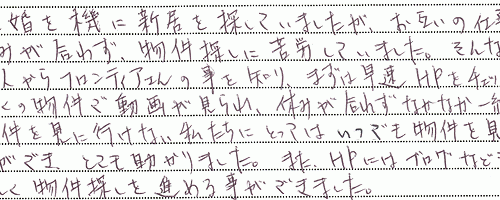 婚を機に新居を探していましたが、お互いの仕
みが合わず、物件探しに苦労していました。そんな
人からフロンティアさんの事を知り、まずは早速HPを
くの物件で動画が見られ、休みが合わずなかなか一
件を見に行けない私たちにとってはいつでも物件を見
ができ、とても助かりました。また、HPにはブログなど
しく物件探しを進める事ができました。